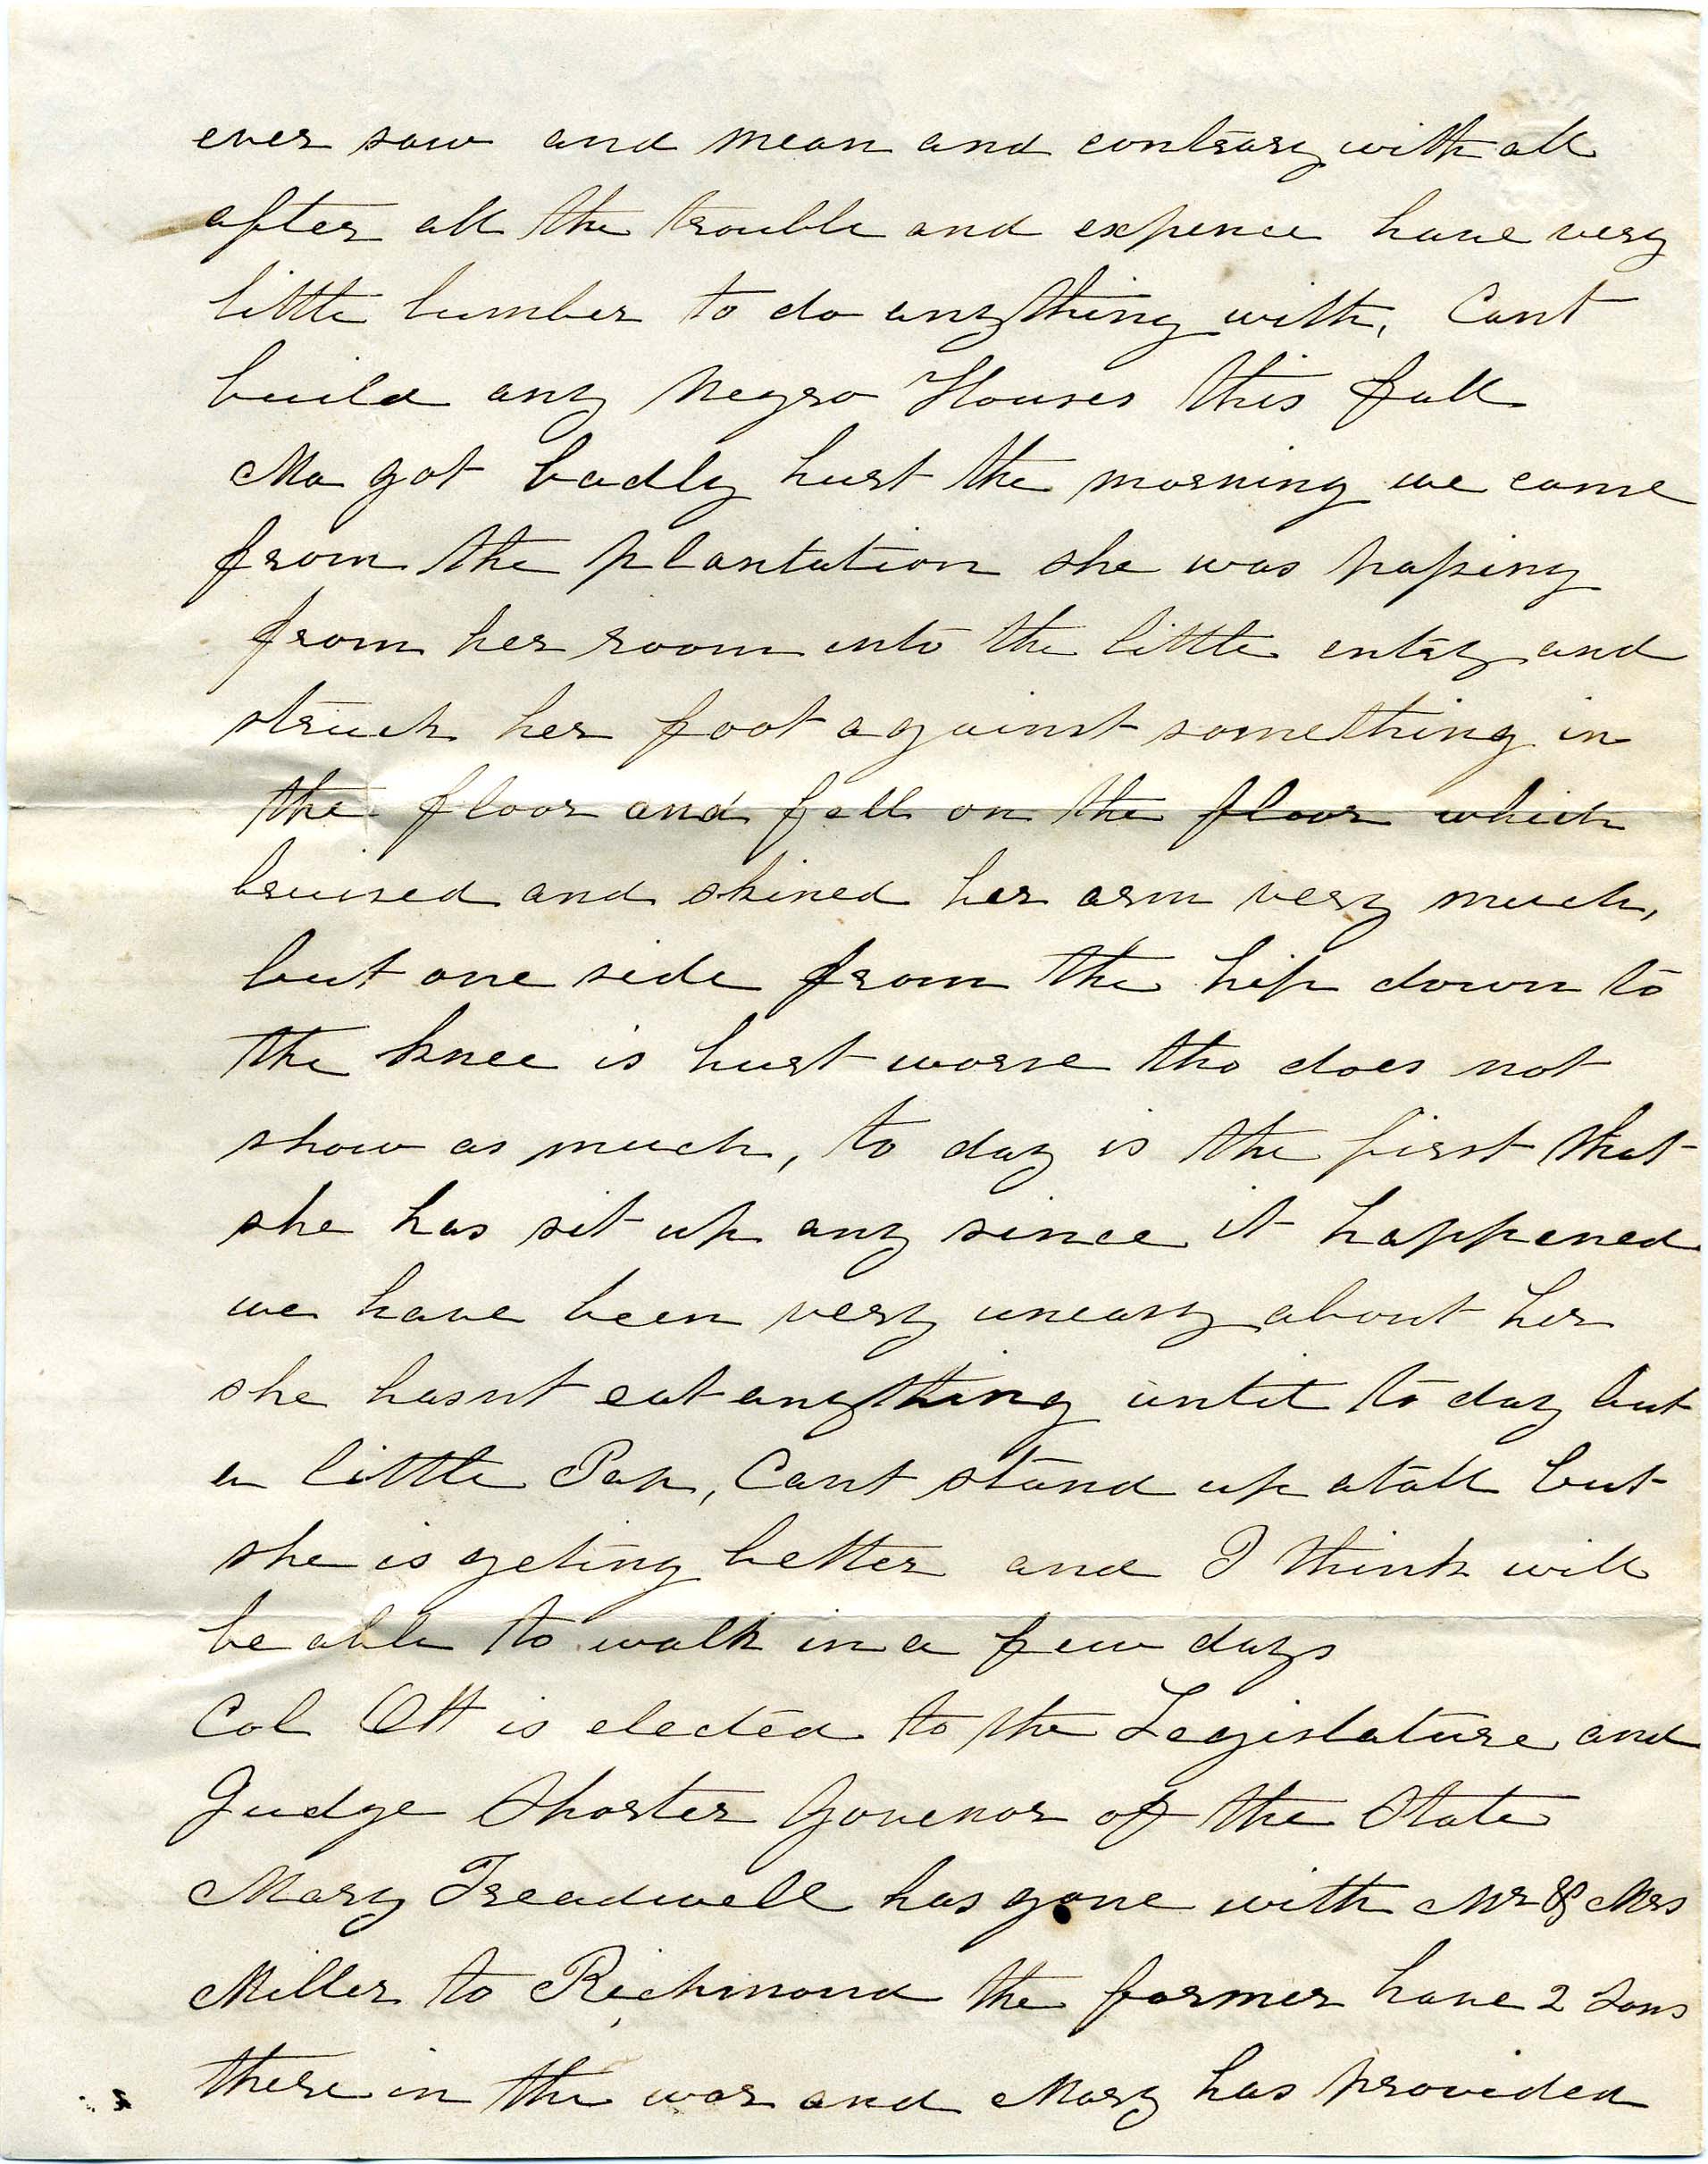 ever saw and mean and contrary with all
after all the trouble and expence have very
little lumber to do anything with, Cant
build any Negro Houses this fall
Ma got badly hurt the morning we came
from the plantation she was passing
from her room into the little entry and
struck her foot against something in
the floor and fell on the floor which
bruised and skined her arm very much,
but one side from the hip down to
the knee is hurt worse tho does not
show as much, to day is the first that
she has sit up any since it happened
we have been very uneasy about her
she hasnt eat anything until to day but
a little Pap, Cant stand up atall but
she is geting better and I think will
be able to walk in a few days
Col Ott is elected to the Legislature and
Judge Shorter Govenor of the State
Mary Treadwell has gone with Mr & Mrs
Miller to Richmond the former have 2 Sons
there in the war and Mary has provided